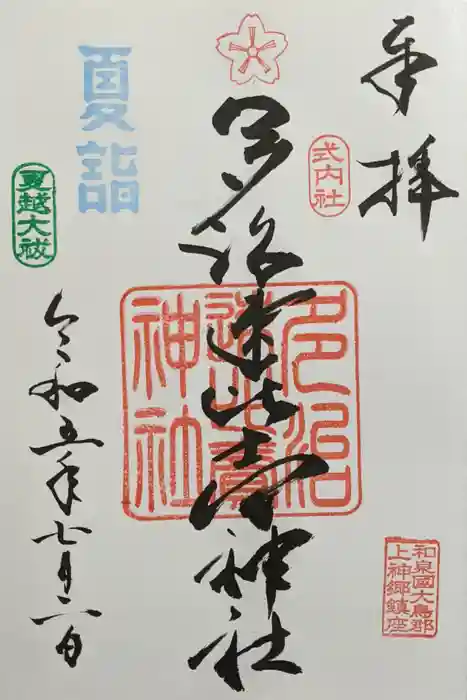 奉拝
式内社
多治速比売神社
多治
速比賣
神社
和泉國大鳥郡
上神郷鎮座
夏詣
夏越大祓
令和五年七月二日